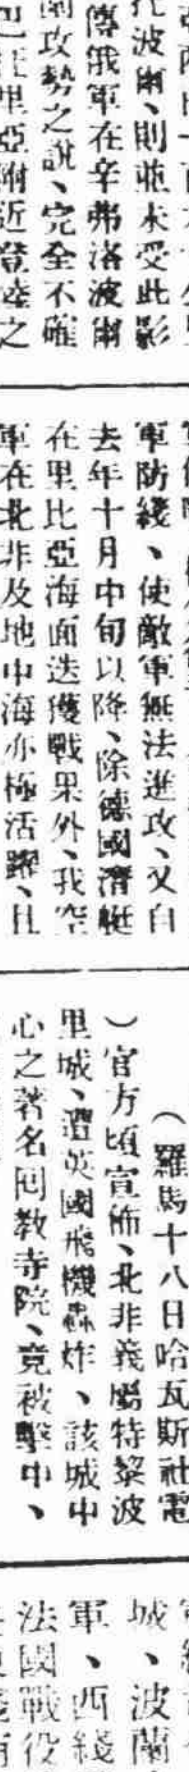 托波爾、則並未受此影
傳俄軍在辛弗洛波爾
蘭攻勢之說、完全不確
巴託里亞附近登陸之
軍防綫、使敵軍無法進攻、又自
去年十月中旬以降、除德國潛艇
在里比亞海面迭獲戰果外、我空
軍在北非及地中海亦極活躍、且
（羅馬十八日哈瓦斯社電
）官方頃宣佈、北非義屬特黎波
里城、遭英國飛機轟炸、該城中
心之著名回教寺院、竟被擊中、
城、波蘭
軍、西綫
法國戰役